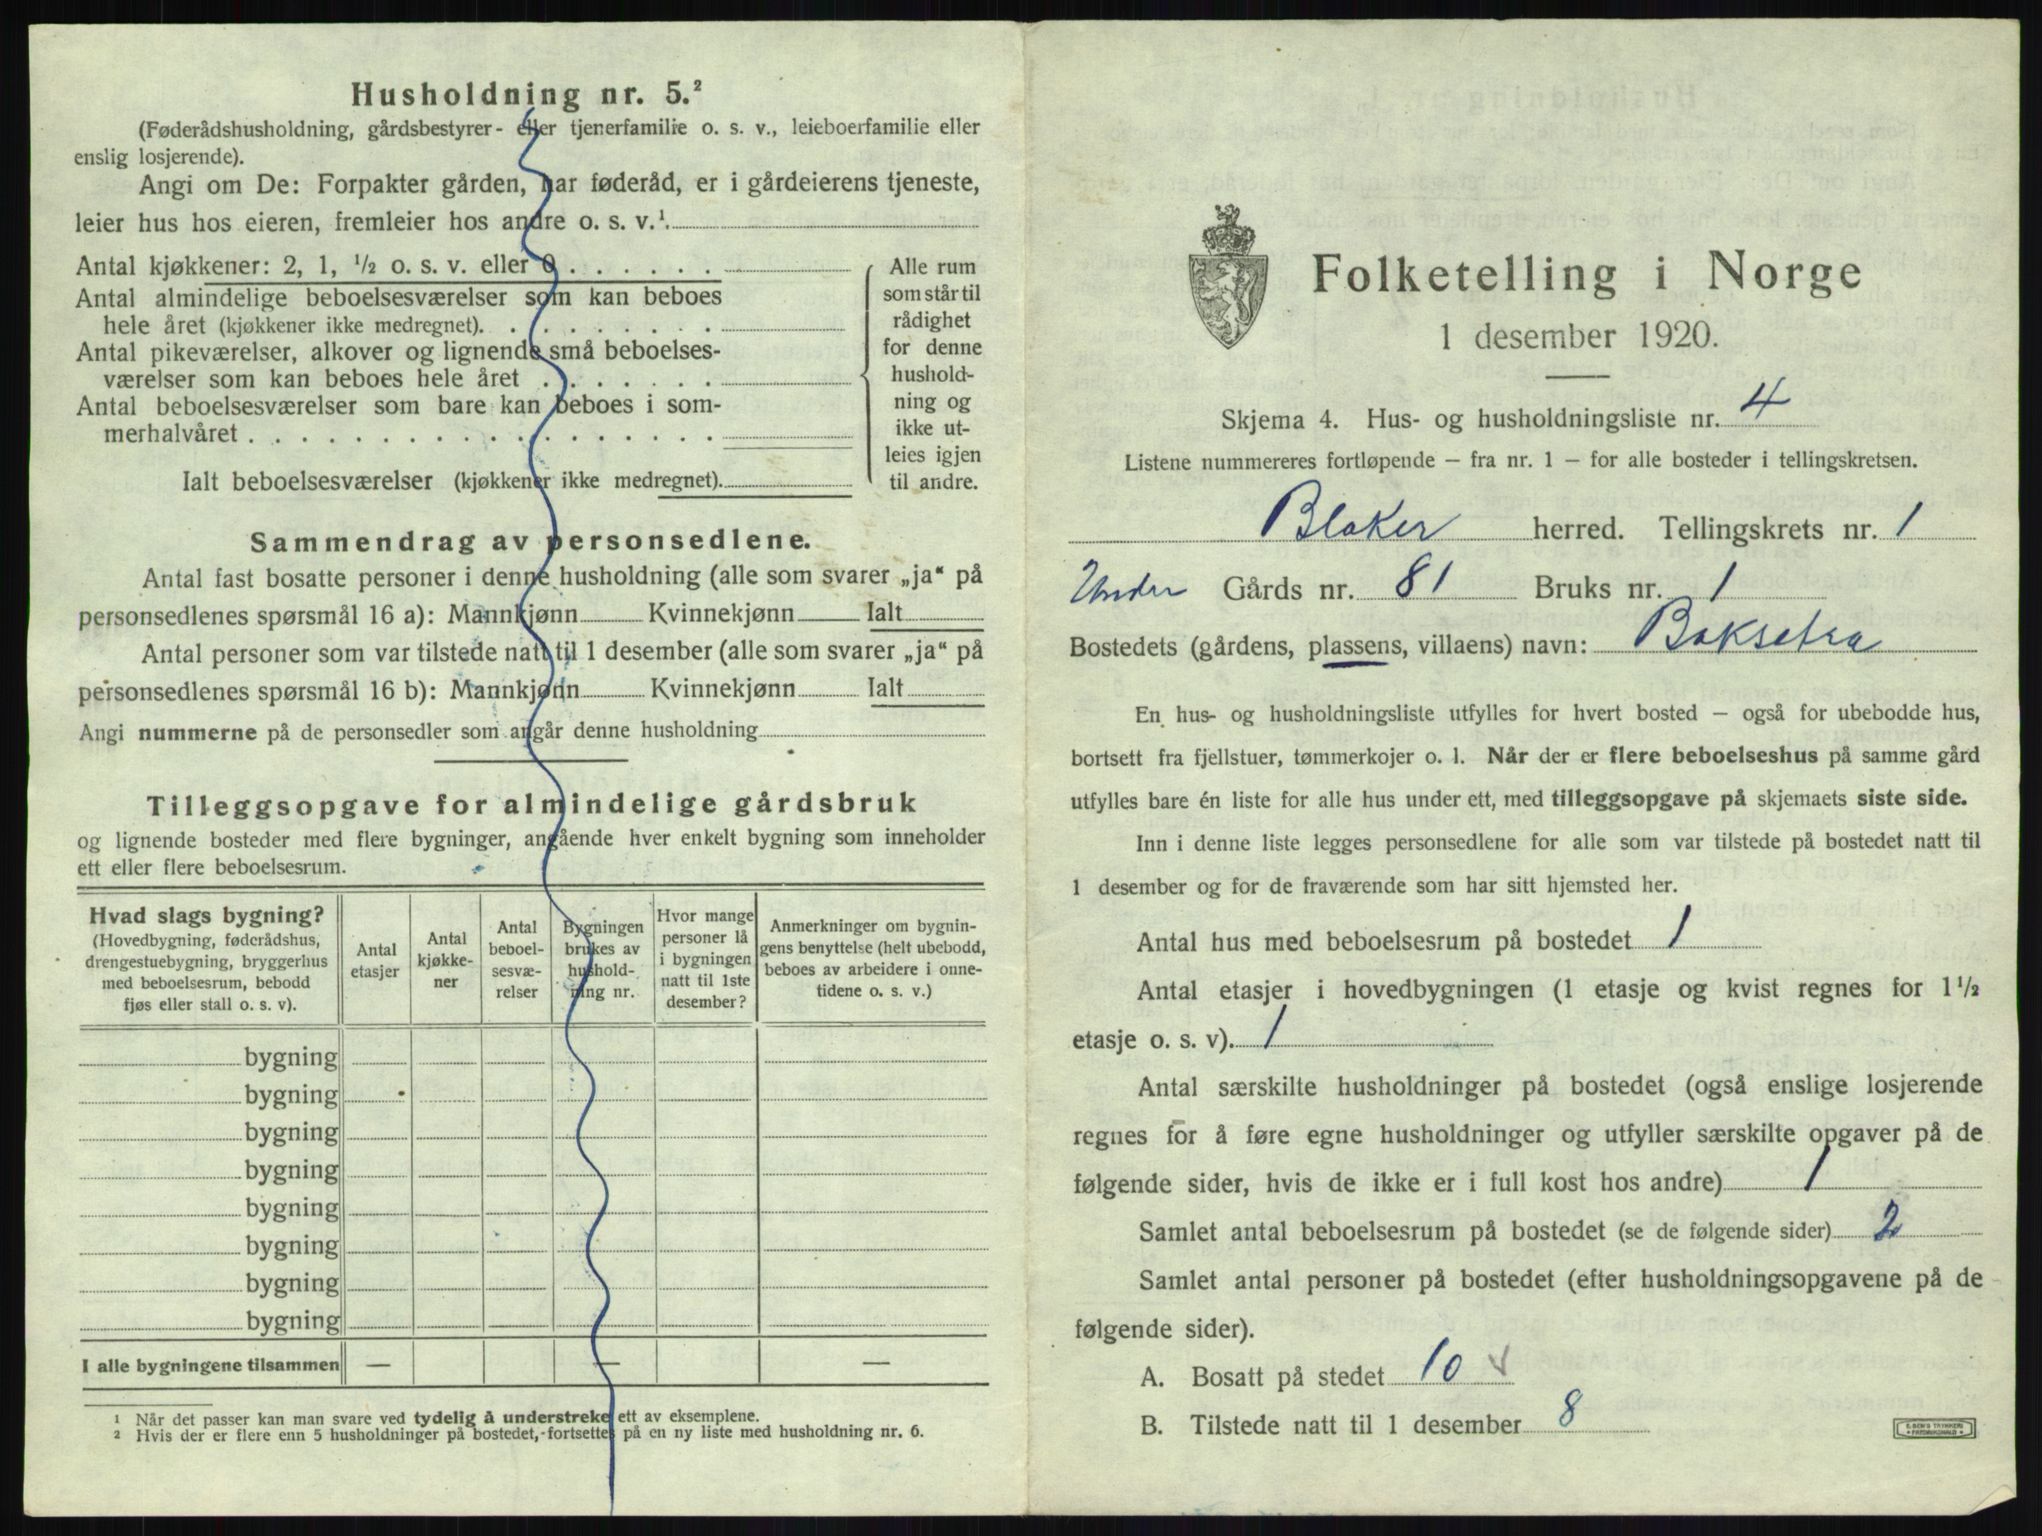 Husholdning nr. 5.²
(Føderådshusholdning, gårdsbestyrer- eller tjenerfamilie o. s. v., leieboerfamilie eller
enslig losjerende).
Angi om De: Forpakter gården, har føderåd, er i gårdeierens tjeneste,
leier hus hos eieren, fremleier hos andre o. s. v.¹
Antal kjøkkener: 2, 1, ½ o. s. v. eller 0
Antal almindelige beboelsesværelser som kan beboes
hele året (kjøkkener ikke medregnet)
Antal pikeværelser, alkover og lignende små beboelses-
værelser som kan beboes hele året
Antal beboelsesværelser som bare kan beboes i som-
merhalvåret
Ialt beboelsesværelser (kjøkkener ikke medregnet)
Alle rum
som står til
rådighet
for denne
hushold-
ning og
ikke ut-
leies igjen
til andre.
Sammendrag av personsedlene.
Antal fast bosatte personer i denne husholdning (alle som svarer „ja“ på
personsedlenes spørsmål 16 a): Mannkjønn Kvinnekjønn Ialt
Antal personer som var tilstede natt til 1 desember (alle som svarer „ja“ på
personsedlenes spørsmål 16 b): Mannkjønn Kvinnekjønn Ialt
Angi nummerne på de personsedler som angår denne husholdning
Tilleggsopgave for almindelige gårdsbruk
og lignende bosteder med flere bygninger, angående hver enkelt bygning som inneholder
ett eller flere beboelsesrum.
Hvad slags bygning?
(Hovedbygning, føderådshus,
drengestuebygning, bryggerhus
med beboelsesrum, bebodd
fjøs eller stall o. s. v).
Antal
etasjer
Antal
kjøkke-
ner
Antal
beboel-
sesvæ-
relser
Bygningen
brukes av
hushold-
ning nr.
Hvor mange
personer lå
i bygningen
natt til 1ste
desember?
Anmerkninger om bygnin-
gens benyttelse (helt ubebodd,
beboes av arbeidere i onne-
tidene o. s. v.)
bygning
bygning
bygning
bygning
bygning
bygning
bygning
bygning
I alle bygningene tilsammen — — —
¹ Når det passer kan man svare ved tydelig å understreke ett av eksemplene.
² Hvis der er flere enn 5 husholdninger på bostedet, fortsettes på en ny liste med husholdning nr. 6.
Folketelling i Norge
1 desember 1920.
Skjema 4. Hus- og husholdningsliste nr. 4
Listene nummereres fortløpende – fra nr. 1 – for alle bosteder i tellingskretsen.
Blaker herred. Tellingskrets nr. 1
Under Gårds nr. 81 Bruks nr. 1
Bostedets (gårdens, plassens, villaens) navn: Baksetra
En hus- og husholdningsliste utfylles for hvert bosted – også for ubebodde hus,
bortsett fra fjellstuer, tømmerkojer o. l. Når der er flere beboelseshus på samme gård
utfylles bare én liste for alle hus under ett, med tilleggsopgave på skjemaets siste side.
Inn i denne liste legges personsedlene for alle som var tilstede på bostedet natt til
1 desember og for de fraværende som har sitt hjemsted her.
Antal hus med beboelsesrum på bostedet 1
Antal etasjer i hovedbygningen (1 etasje og kvist regnes for 1½
etasje o. s. v). 1
Antal særskilte husholdninger på bostedet (også enslige losjerende
regnes for å føre egne husholdninger og utfyller særskilte opgaver på de
følgende sider, hvis de ikke er i full kost hos andre) 1
Samlet antal beboelsesrum på bostedet (se de følgende sider) 2
Samlet antal personer på bostedet (efter husholdningsopgavene på de
følgende sider).
A. Bosatt på stedet 10
B. Tilstede natt til 1 desember 8